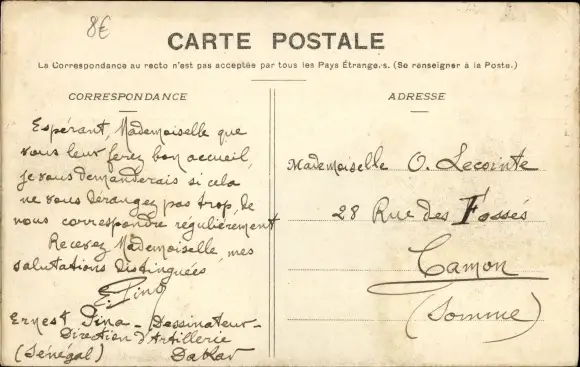 8€
CARTE POSTALE
La Correspondance au recto n'est pas acceptée par tous les Pays Étrangers. (Se renseigner à la Poste.)
CORRESPONDANCE
Espérant, Mademoiselle que
vous leur ferez bon accueil,
je vous demanderais si cela
ne vous dérangez pas trop, de
nous correspondre régulièrement
Recevez Mademoiselle, mes
salutations distinguées
E. Pina
Ernest Pina - Dessinateur -
Direction d'Artillerie
(Sénégal) Dakar
ADRESSE
Mademoiselle O. Lecointe
28 Rue des Fossés
Camon
(Somme)